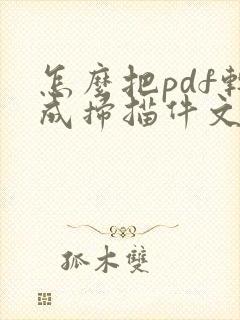 怎麼把pdf轉
成掃描件文
孤木雙